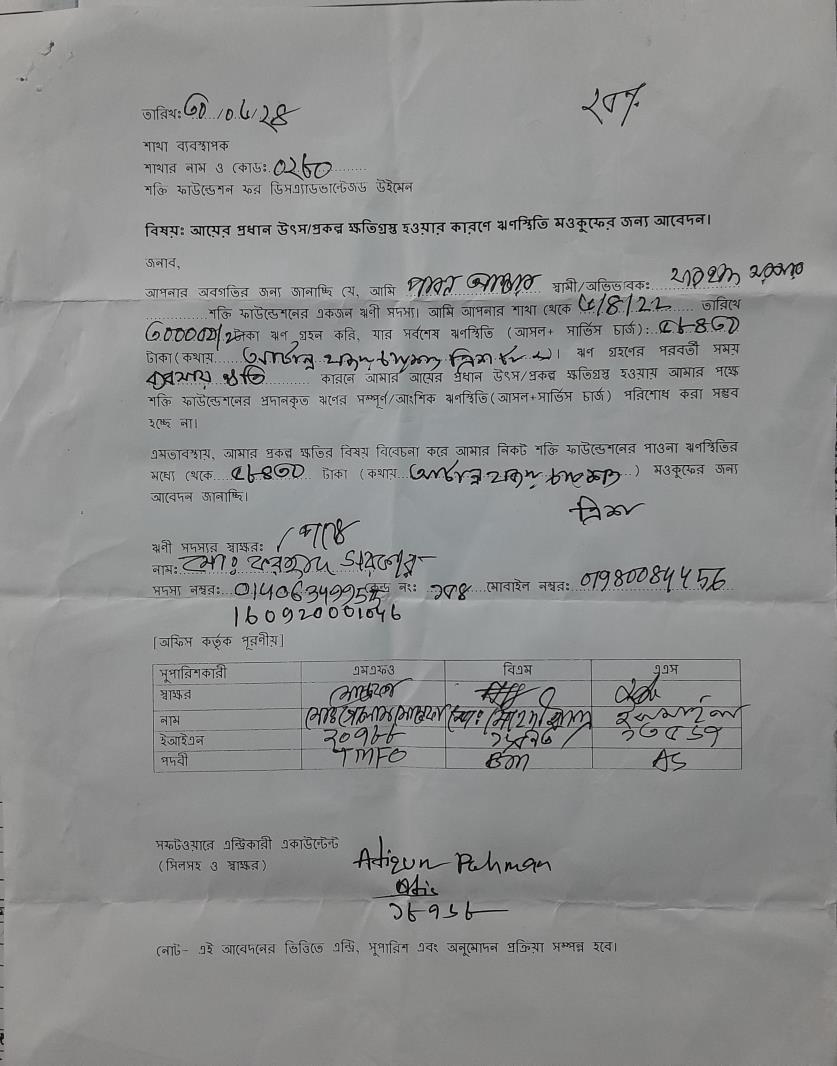 ২০৭
তারিখ: ৩০/০৬/২৪
শাখা ব্যবস্থাপক
শাখার নাম ও কোড: ০২৮০
শক্তি ফাউন্ডেশন ফর ডিসএ্যাডভান্টেজড উইমেন
বিষয়ঃ আয়ের প্রধান উৎস/প্রকল্প ক্ষতিগ্রস্ত হওয়ার কারণে ঋণস্থিতি মওকুফের জন্য আবেদন।
জনাব,
আপনার অবগতির জন্য জানাচ্ছি যে, আমি আক্তার স্বামী/অভিভাবক:
শক্তি ফাউন্ডেশনের একজন ঋণী সদস্য। আমি আপনার শাখা থেকে ৫/৪/২২ তারিখে
৩০০০০/ টাকা ঋণ গ্রহন করি, যার সর্বশেষ ঋণস্থিতি (আসল+ সার্ভিস চার্জ): ৫৮৪৩০
টাকা(কথায় আটান্ন হাজার চারশত ত্রিশ )। ঋণ গ্রহণের পরবর্তী সময়
ব্যবসায় ক্ষতি কারনে আমার আয়ের প্রধান উৎস/প্রকল্প ক্ষতিগ্রস্ত হওয়ায় আমার পক্ষে
শক্তি ফাউন্ডেশনের প্রদানকৃত ঋণের সম্পূর্ণ/আংশিক ঋণস্থিতি(আসল+সার্ভিস চার্জ) পরিশোধ করা সম্ভব
হচ্ছে না।
এমতাবস্থায়, আমার প্রকল্প ক্ষতির বিষয় বিবেচনা করে আমার নিকট শক্তি ফাউন্ডেশনের পাওনা ঋণস্থিতির
মধ্যে থেকে ৫৮৪৩০ টাকা (কথায় আটান্ন হাজার চারশত ) মওকুফের জন্য
আবেদন জানাচ্ছি। ত্রিশ
ঋণী সদস্যর স্বাক্ষর:
নাম: মোঃ
সদস্য নম্বর: নং: ২০৪ মোবাইল নম্বর: 01980084456
160920001046
[অফিস কর্তৃক পূরণীয়]
সুপারিশকারী এমএফও বিএম এএম
স্বাক্ষর
নাম
ইআইএন ২০৭৮৮
পদবী TMFO BM AS
সফটওয়ারে এন্ট্রিকারী একাউন্টেন্ট
(সিলসহ ও স্বাক্ষর) Atiqur Rahman
Atic
১৮৭১৮
নোট- এই আবেদনের ভিত্তিতে এন্ট্রি, সুপারিশ এবং অনুমোদন প্রক্রিয়া সম্পন্ন হবে।